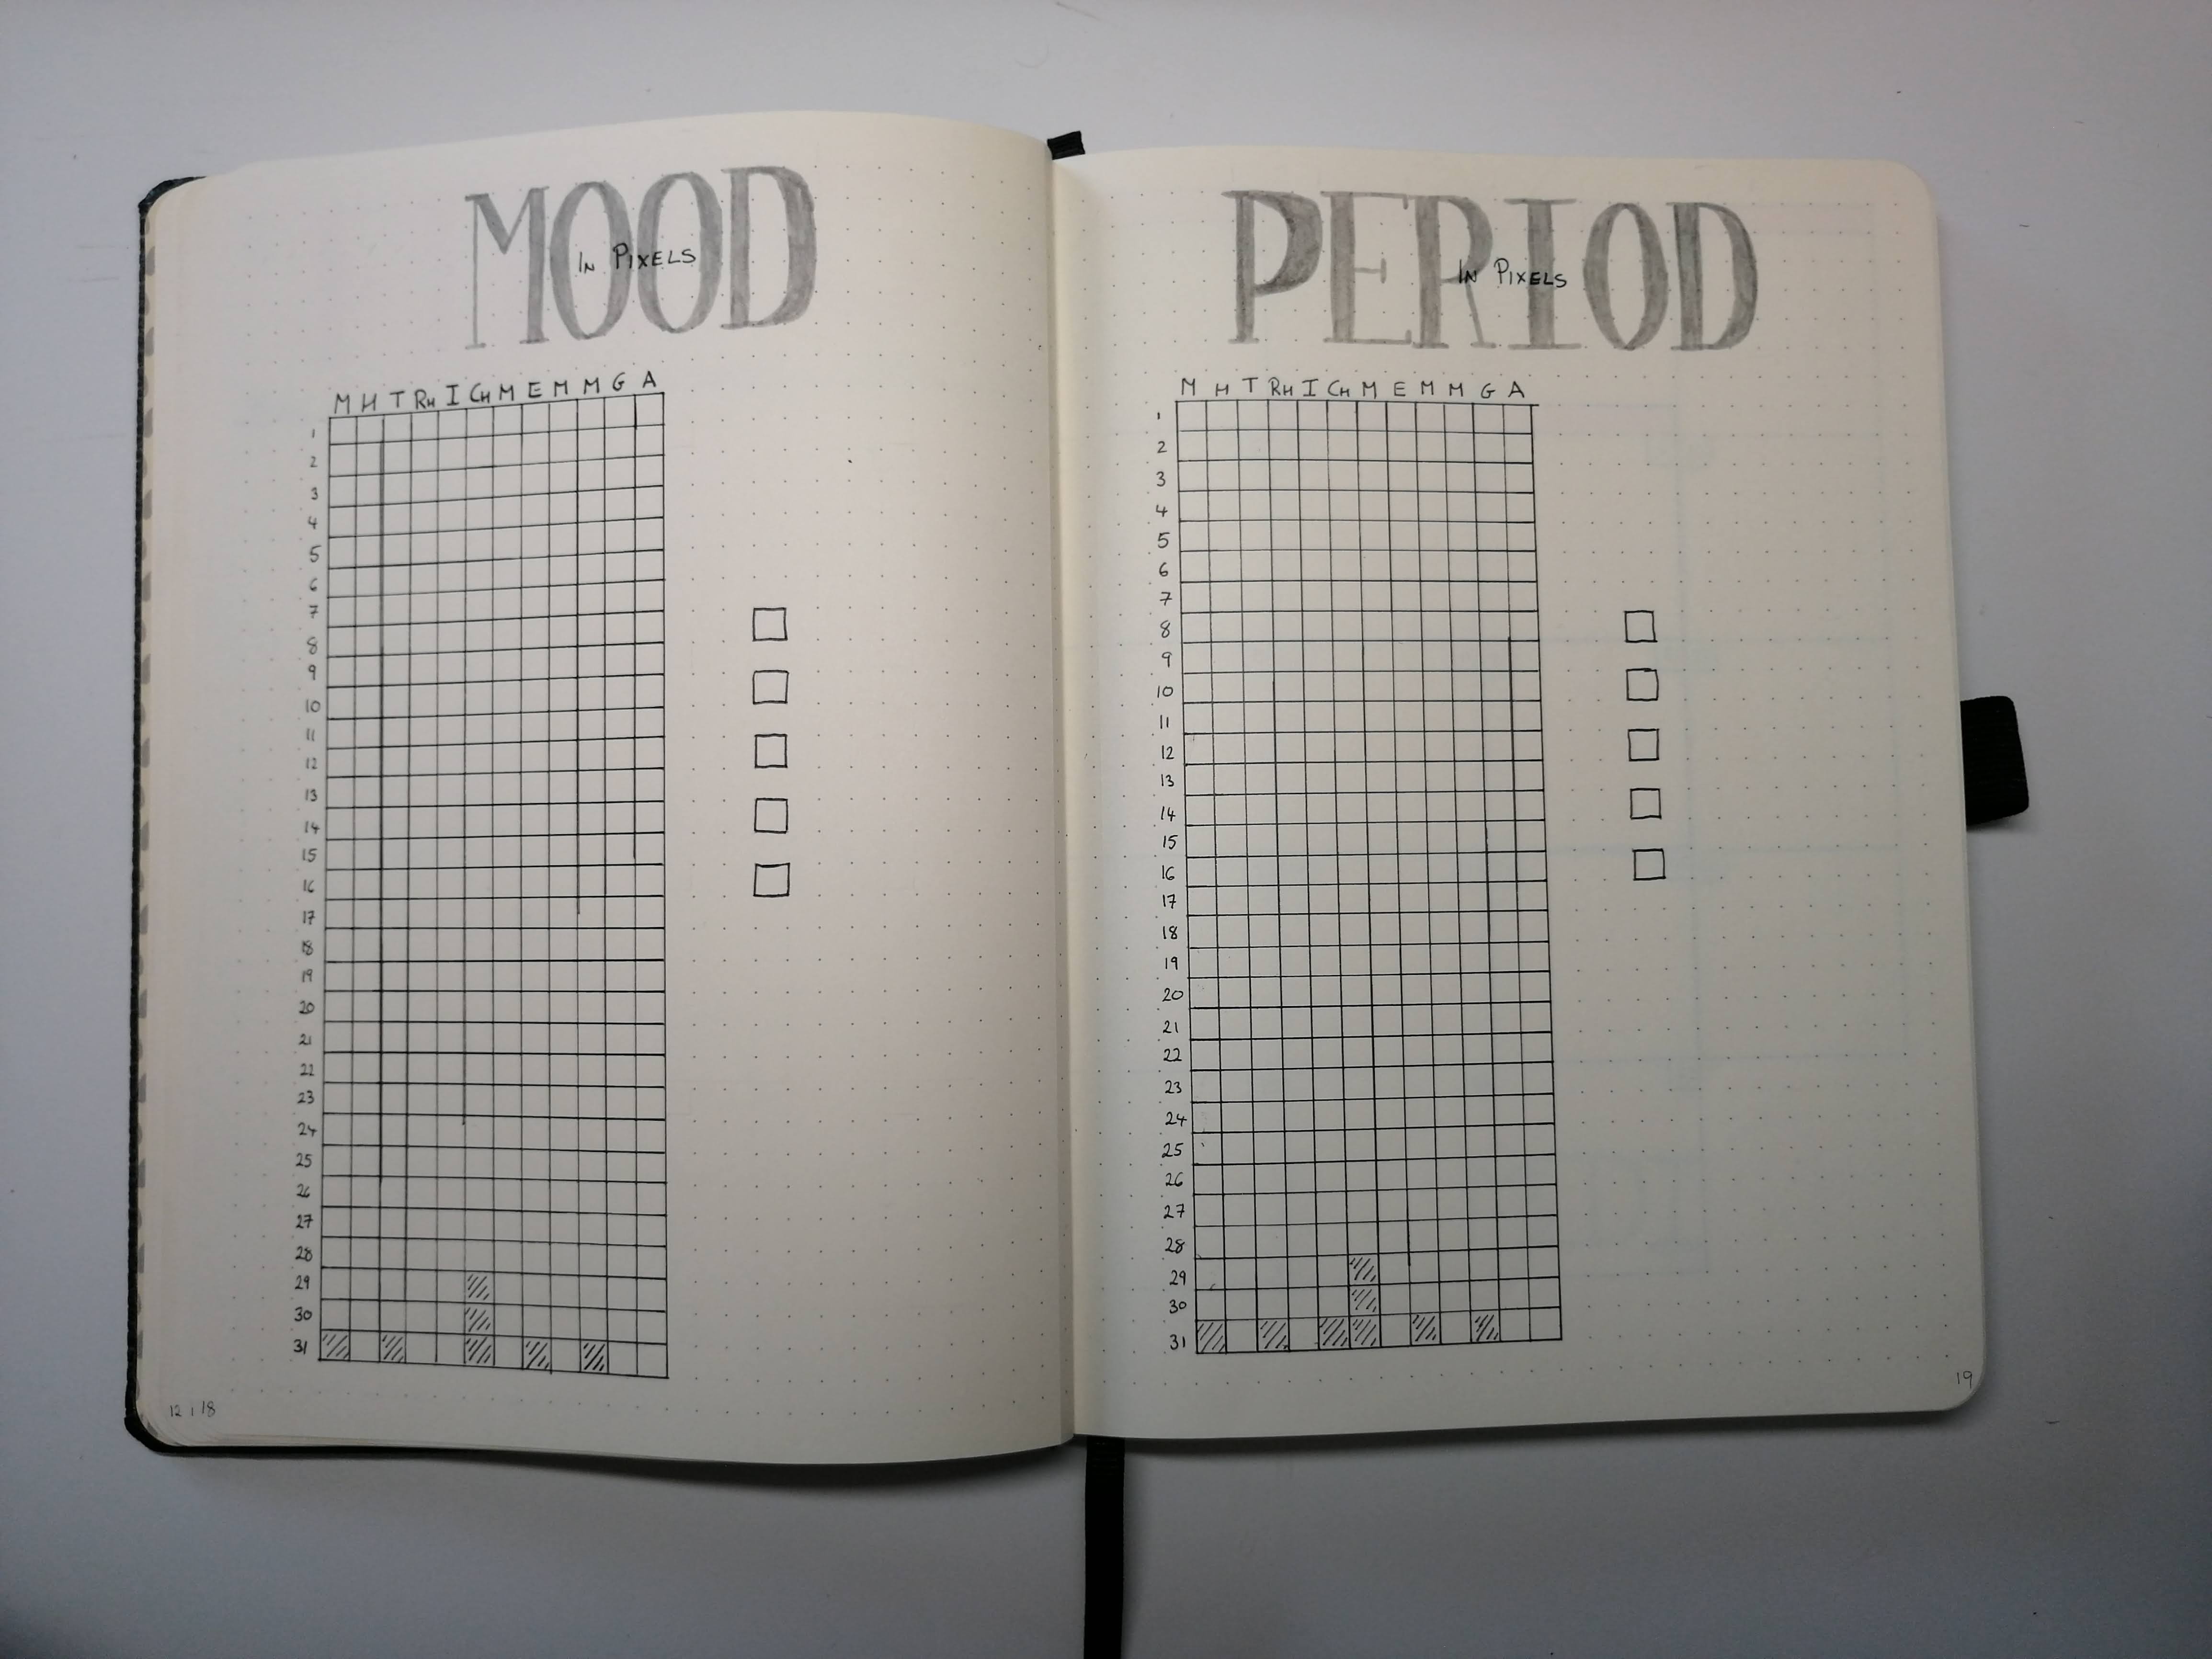 MOOD
IN PIXELS
M H T RH I CH M E M M G A
1
2
3
4
5
6
7
8
9
10
11
12
13
14
15
16
17
18
19
20
21
22
23
24
25
26
27
28
29
30
31
12 | 18
PERIOD
IN PIXELS
M H T RH I CH M E M M G A
1
2
3
4
5
6
7
8
9
10
11
12
13
14
15
16
17
18
19
20
21
22
23
24
25
26
27
28
29
30
31
19